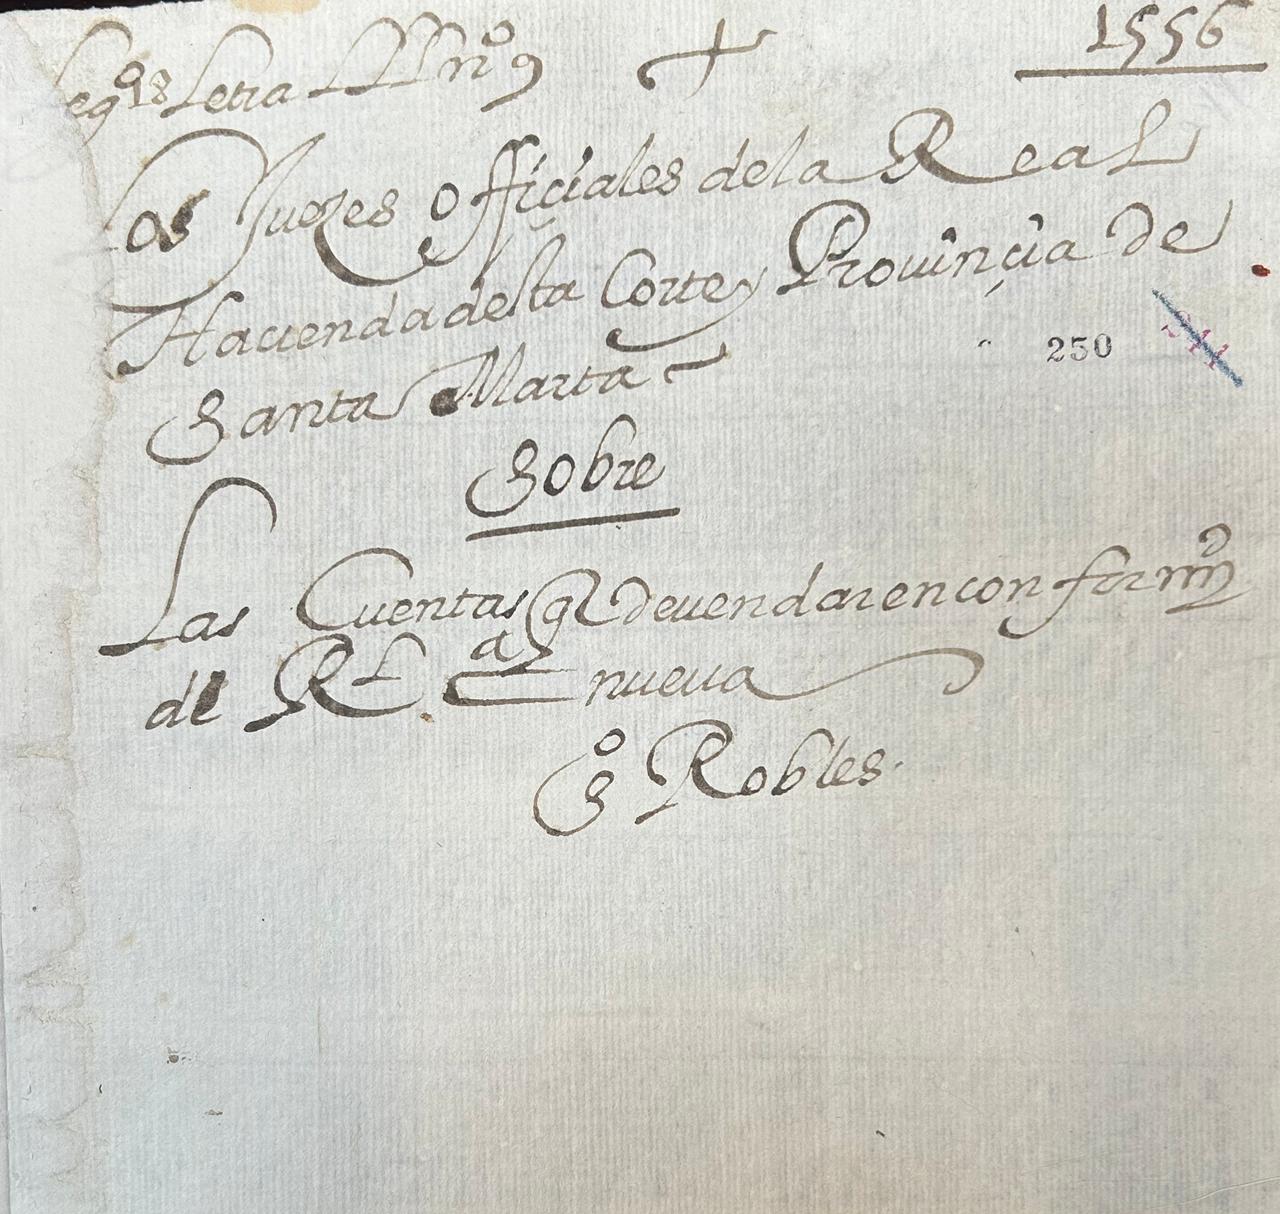 Leg.º 18 Letra LL nº 9 1556
Los Juezes Officiales de la Real
Hacienda desta Corte y Provinçia de
Santa Marta
250
Sobre
Las Cuentas q deven dar en conformd
de Rl nueva
SSº Robles.